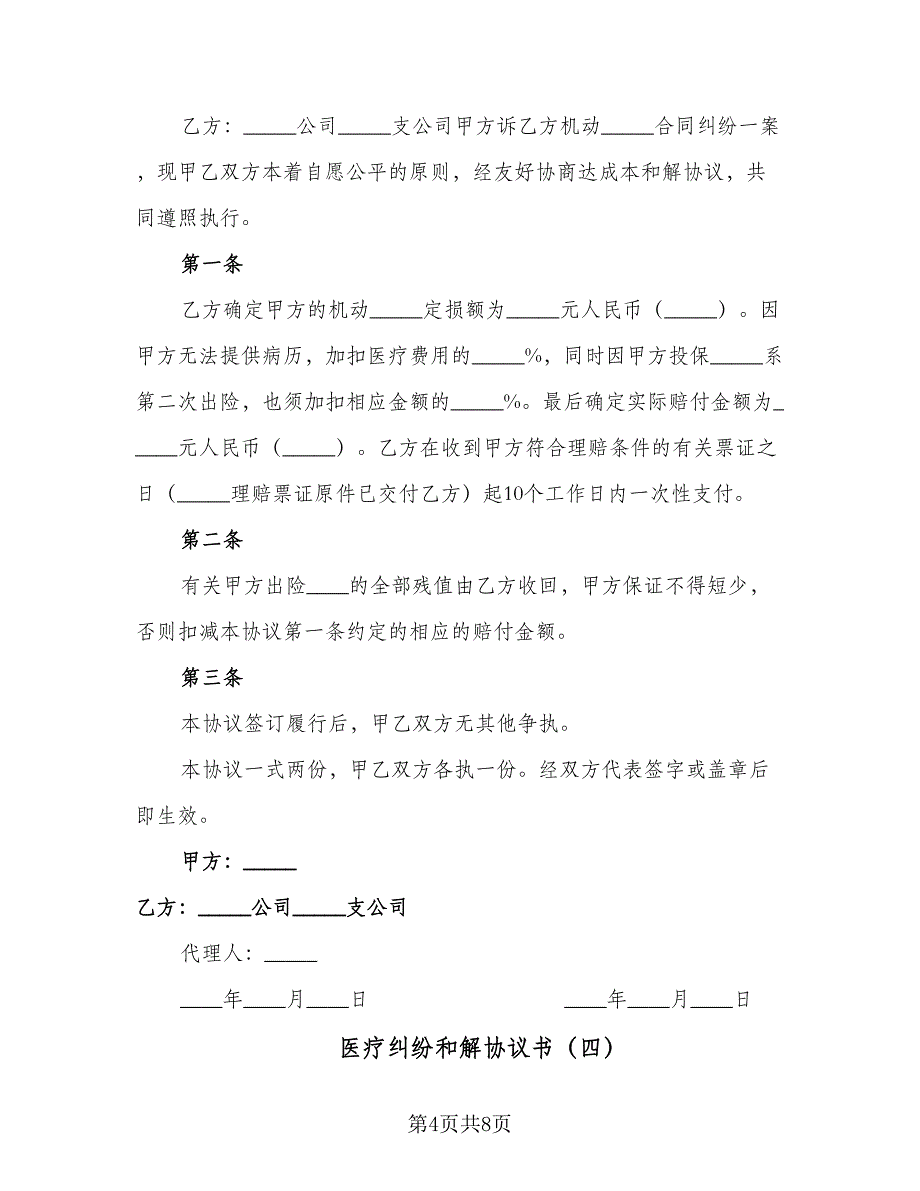 乙方：_____公司_____支公司甲方诉乙方机动_____合同纠纷一案
，现甲乙双方本着自愿公平的原则，经友好协商达成本和解协议，共
同遵照执行。
第一条
乙方确定甲方的机动_____定损额为_____元人民币（_____）。因
甲方无法提供病历，加扣医疗费用的_____%，同时因甲方投保_____系
第二次出险，也须加扣相应金额的_____%。最后确定实际赔付金额为_
____元人民币（_____）。乙方在收到甲方符合理赔条件的有关票证之
日（_____理赔票证原件已交付乙方）起10个工作日内一次性支付。
第二条
有关甲方出险____的全部残值由乙方收回，甲方保证不得短少，
否则扣减本协议第一条约定的相应的赔付金额。
第三条
本协议签订履行后，甲乙双方无其他争执。
本协议一式两份，甲乙双方各执一份。经双方代表签字或盖章后
即生效。
甲方：_____
乙方：_____公司_____支公司
代理人：_____
____年____月____日 ____年____月____日
医疗纠纷和解协议书（四）
第4页共8页